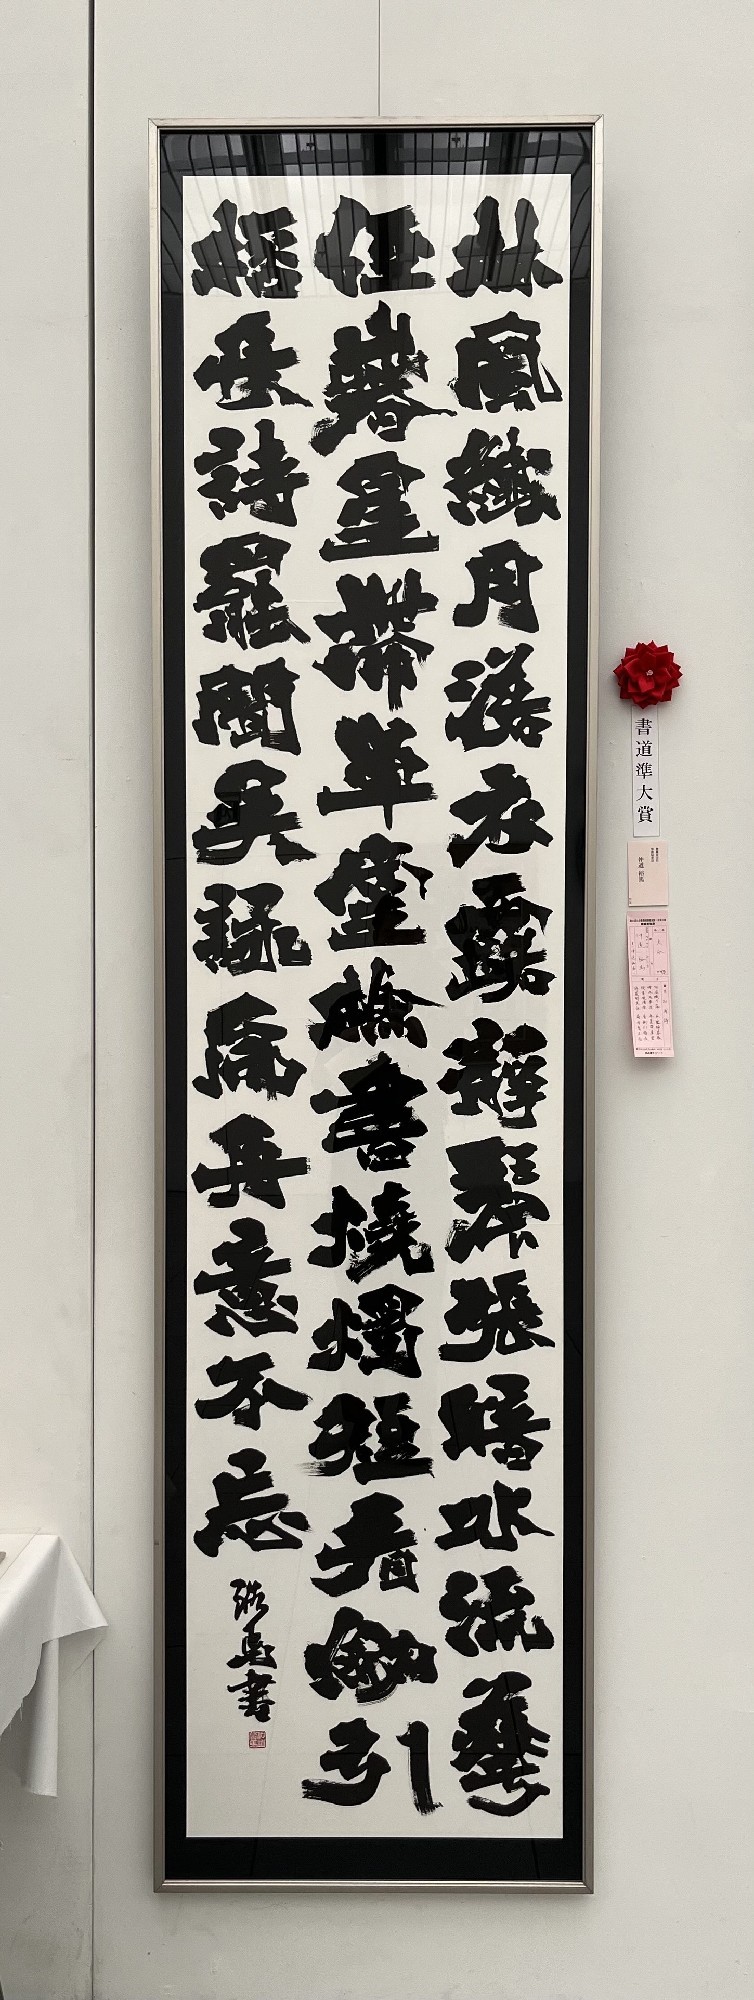 林風纖月落衣露靜琴張暗水流華
徑春星帶草堂檢書燒燭短看劍引
杯長詩罷聞吳詠扁舟意不忘
書
書道準大賞